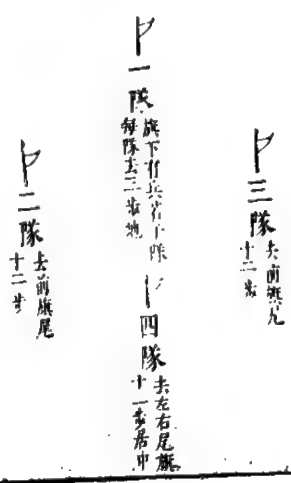 一隊
旗下有兵若干隊
每隊去三步地
三隊
去前旗九
十二步
二隊
去前旗尾
十二步
四隊
去左右尾旗
十一步居中